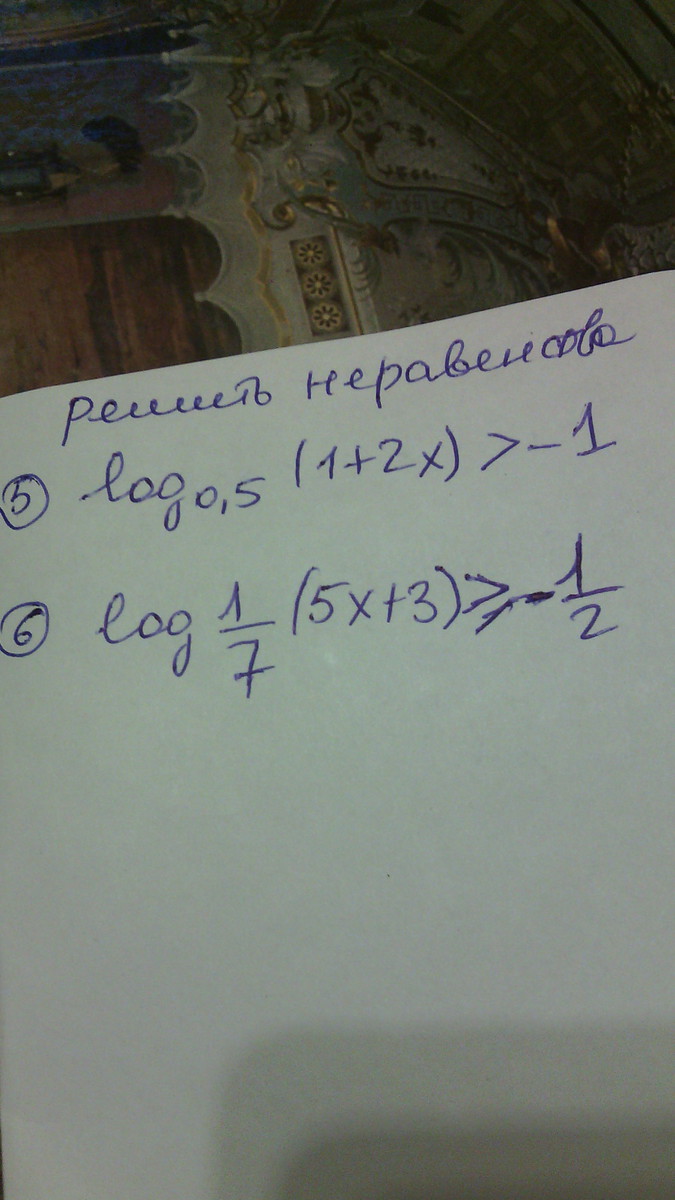 решить неравенсва
5 log 0,5 (1+2x) > -1
6 log 1/7 (5x+3) ≥ -1/2